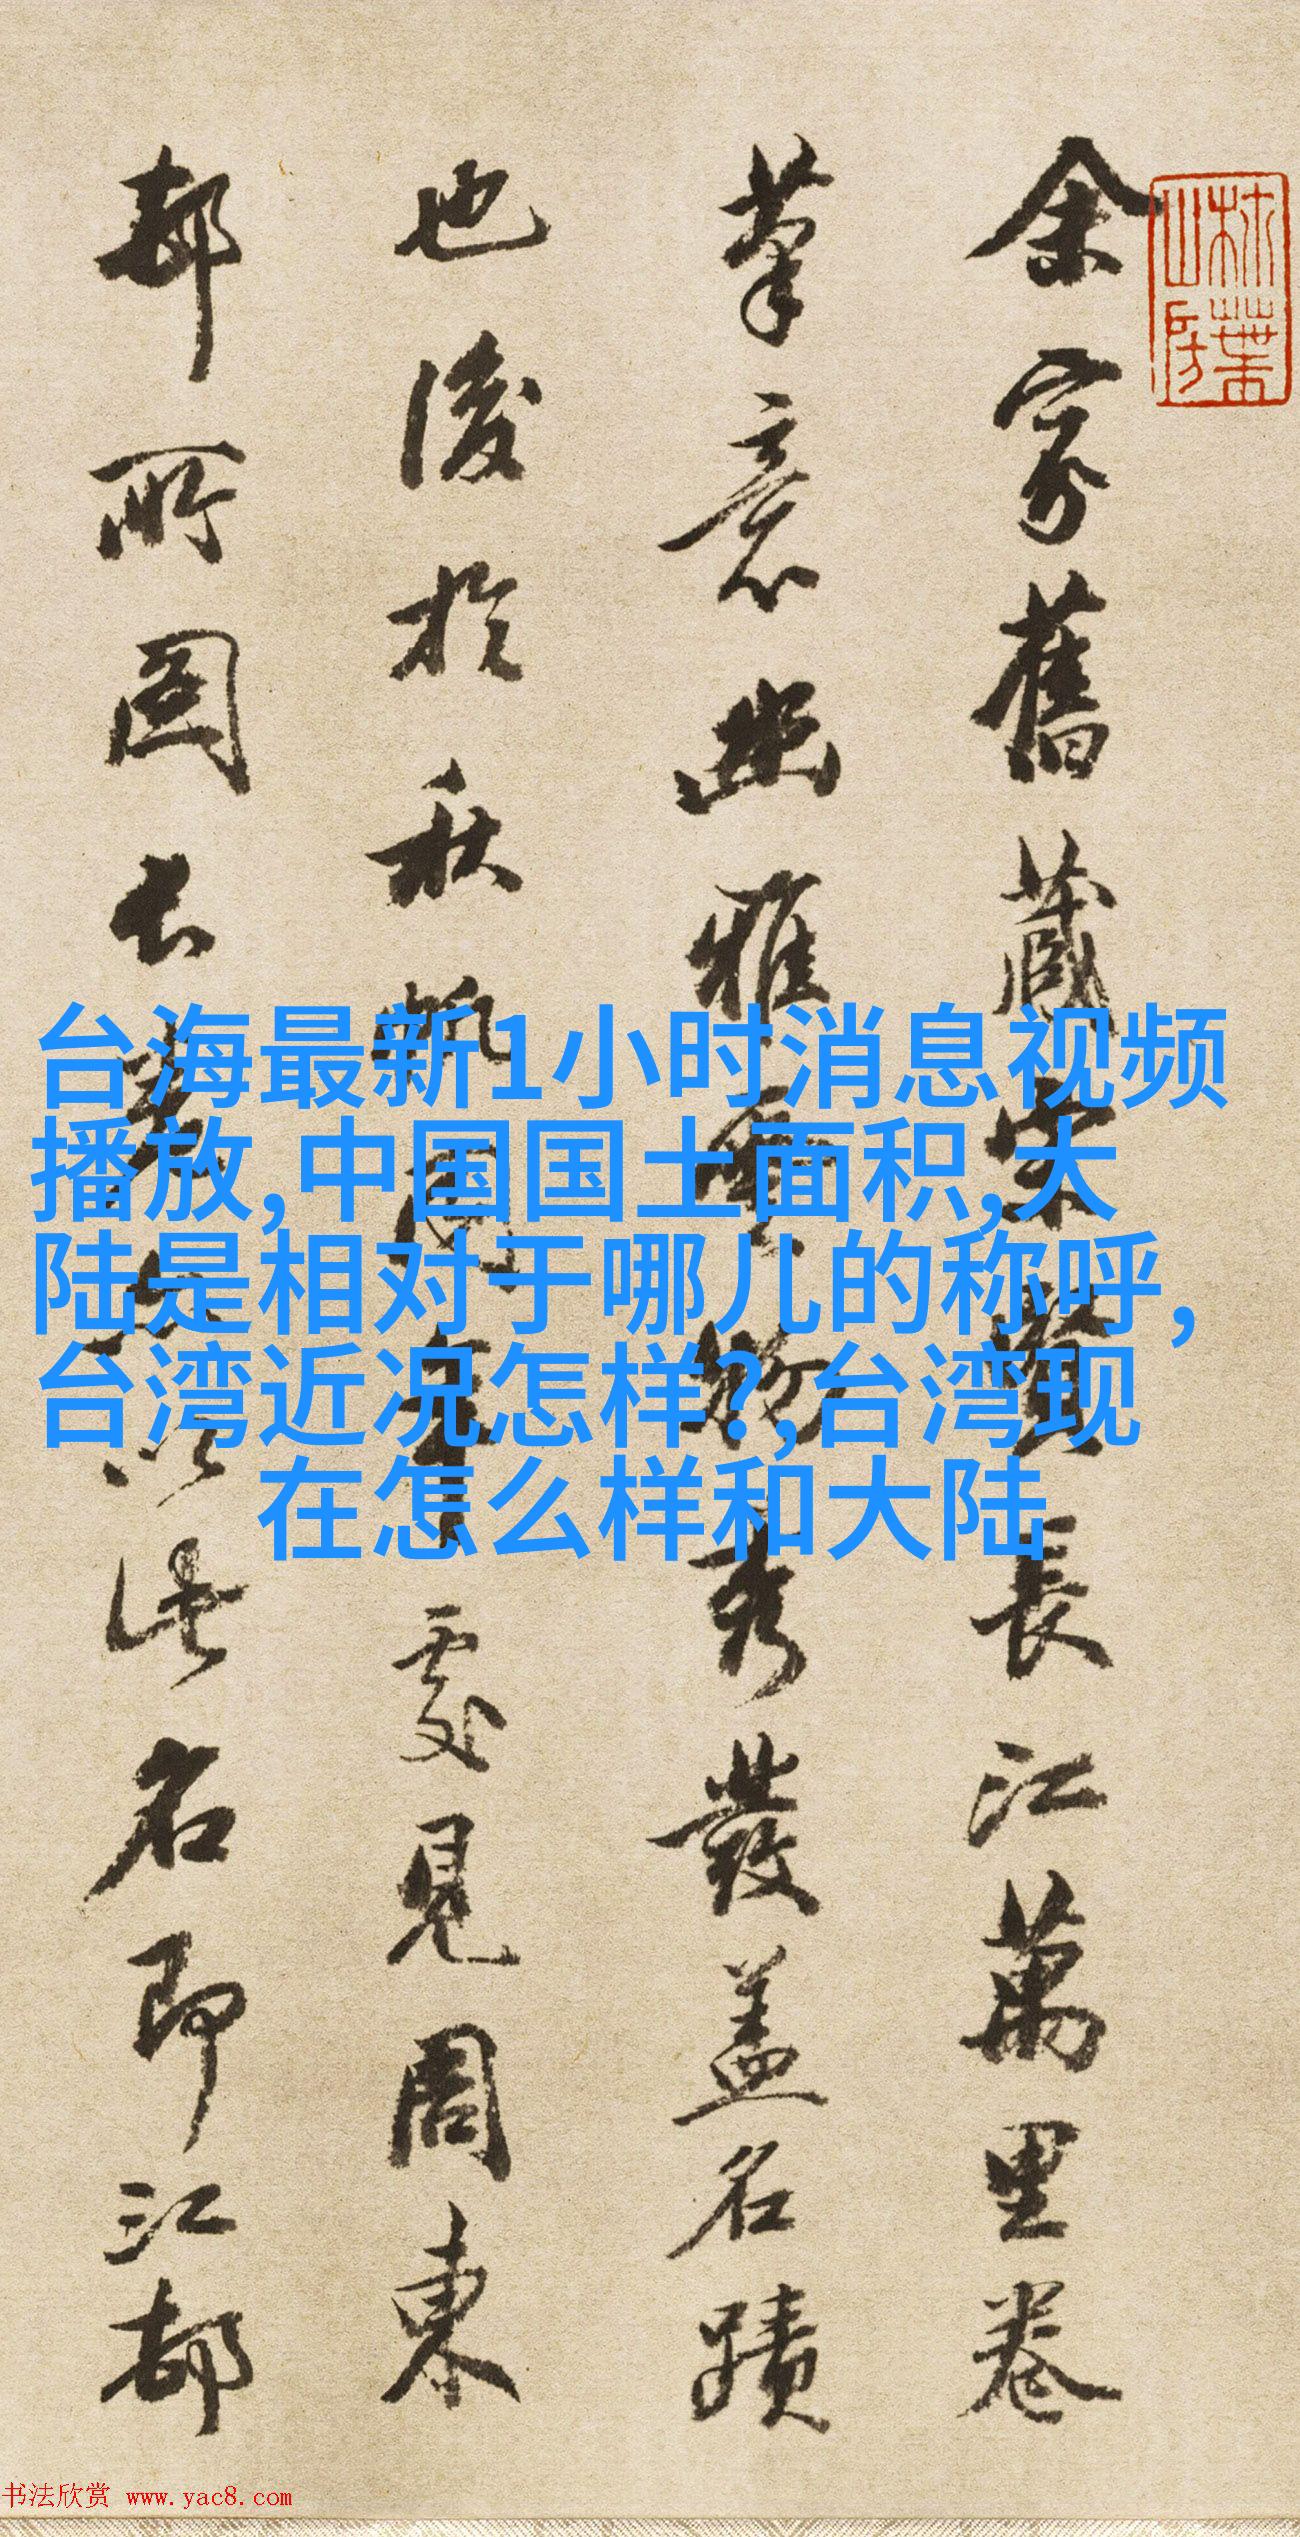 余家舊藏宋賢長江萬里卷
筆意幽雅秀發蓋名蹟
也後於秋帆同年處見周東
邨所圖長卷亦以此名即江都
台海最新1小时消息视频
播放,中国国土面积,大
陆是相对于哪儿的称呼,
台湾近况怎样?,台湾现
在怎么样和大陆
书法欣赏 www.yac8.com